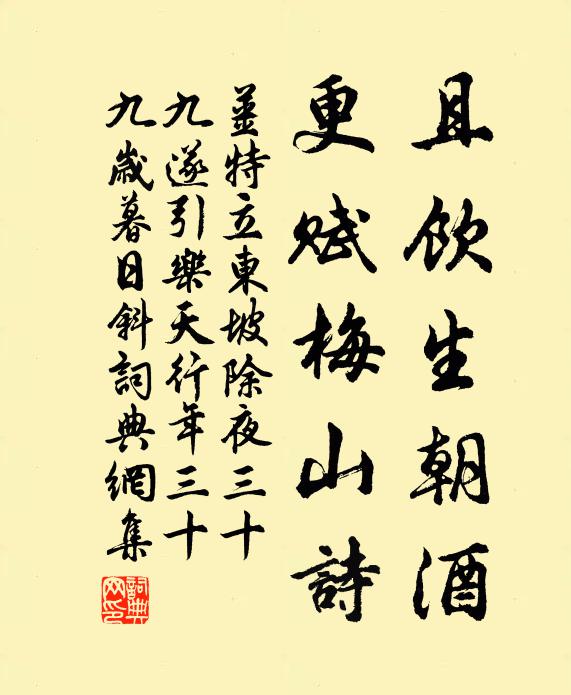 且飲生朝酒
更賦梅山詩
姜特立東坡除夜三十
九遂引樂天行年三十
九歲暮日斜詞典網集
詞典网印